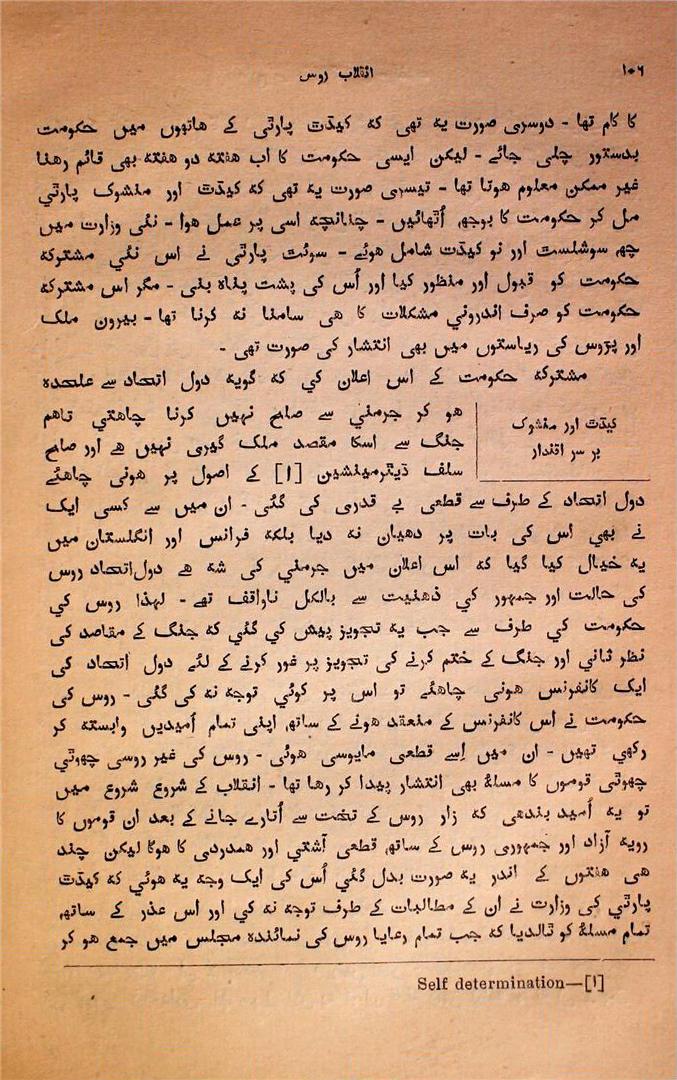 ۱۰۶
انقلاب روس
کا کام تھا - دوسری صورت یہ تھی کہ کیڈٹ پارٹی کے ھاتھوں میں حکومت
بدستور چلی جائے - لیکن ایسی حکومت کا اب ھفتہ دو ھفتہ بھی قائم رھنا
غیر ممکن معلوم ھوتا تھا - تیسری صورت یہ تھی کہ کیڈٹ اور منشوک پارٹي
مل کر حکومت کا بوجھ اُٹھائیں - چنانچہ اسی پر عمل ھوا - نئی وزارت میں
چھ سوشلست اور نو کیڈٹ شامل ھوئے - سوئٹ پارٹی نے اس نئي مشترکہ
حکومت کو قبول اور منظور کیا اور اُس کی پشت پناہ بنی - مگر اس مشترکہ
حکومت کو صرف اندروني مشکلات کا ھی سامنا نہ کرنا تھا - بیرون ملک
اور پڑوس کی ریاستوں میں بھی انتشار کی صورت تھی -
مشترکہ حکومت کے اس اعلان کي کہ گویہ دول اتحاد سے علحدہ
کیڈٹ اور منشوک
بر سر اقتدار
ھو کر جرمني سے صلح نہیں کرنا چاھتي تاھم
جنگ سے اسکا مقصد ملک گیری نہیں ھے اور صلح
سلف ڈیٹرمینشین [۱] کے اصول پر ھونی چاھئے
دول اتحاد کے طرف سے قطعی بے قدری کی گئی - ان میں سے کسی ایک
نے بھی اس کی بات پر دھیان نہ دیا بلکہ فرانس اور انگلستان میں
یہ خیال کیا گیا کہ اس اعلان میں جرمني کی شہ ھے دول اتحاد روس
کی حالت اور جمہور کي ذھنیت سے بالکل ناواقف تھے - لہذا روس کي
حکومت کي طرف سے جب یہ تجویز پیش کی گئي کہ جنگ کے مقاصد کی
نظر ثاني اور جنگ کے ختم کرنے کی تجویز پر غور کرنے کے لئے دول اتحاد کی
ایک کانفرنس ھونی چاھئے تو اس پر کوئي توجہ نہ کی گئی - روس کی
حکومت نے اس کانفرنس کے منعقد ھونے کے ساتھ اپنی تمام اُمیدیں وابستہ کر
رکھي تھیں - ان میں اِسے قطعی مایوسی ھوئی - روس کی غیر روسی چھوٹي
چھوٹی قوموں کا مسلۂ بھی انتشار پیدا کر رھا تھا - انقلاب کے شروع شروع میں
تو یہ اُمید بندھی کہ زار روس کے تخت سے اُتارے جانے کے بعد ان قوموں کا
رویہ آزاد اور جمہوری روس کے ساتھ قطعی آشتی اور ھمدردی کا ھوگا لیکن چند
ھی ھفتوں کے اندر یہ صورت بدل گئي اُس کی ایک وجہ یہ ھوئي کہ کیڈٹ
پارٹي کی وزارت نے ان کے مطالبات کے طرف توجہ نہ کي اور اس عذر کے ساتھ
تمام مسلۂ کو ٹالدیا کہ جب تمام رعایا روس کی نمائندہ مجلس میں جمع ھو کر
Self determination—[۱]